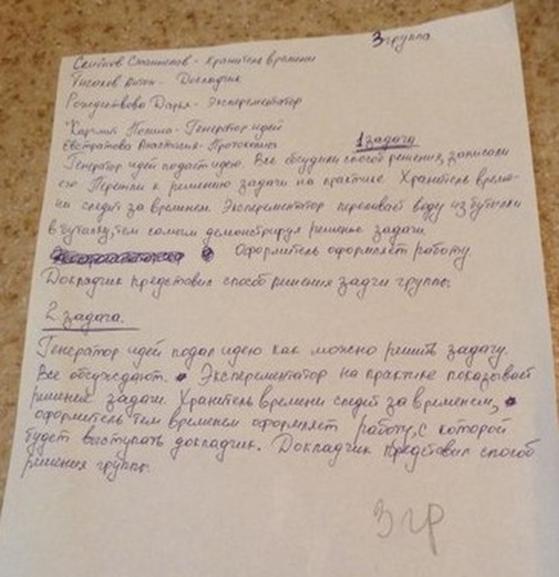 3 группа
Станислав - хранитель времени
Антон - Докладчик
Дарья - Эксперементатор
Полина - Генератор идей
Евстратова Анастасия - Протоколист
1 задача
Генератор идей подаст идею. Все обсудили способ решения, записали
его. Перешли к решению задачи на практике. Хранитель време-
ни следит за временем. Эксперементатор переливает воду из бутылки
в бутылку, тем самым демонстрируя решение задачи.
Оформитель оформляет работу.
Докладчик представил способ решения задчи группы.
2 задача.
Генератор идей подал идею как можно решить задачу.
Все обсуждают. Эксперементатор на практике показывает
решение задачи. Хранитель времени следит за временем,
оформитель тем временем оформляет работу, с которой
будет выступать докладчик. Докладчик представил способ
решения группы.
3 гр